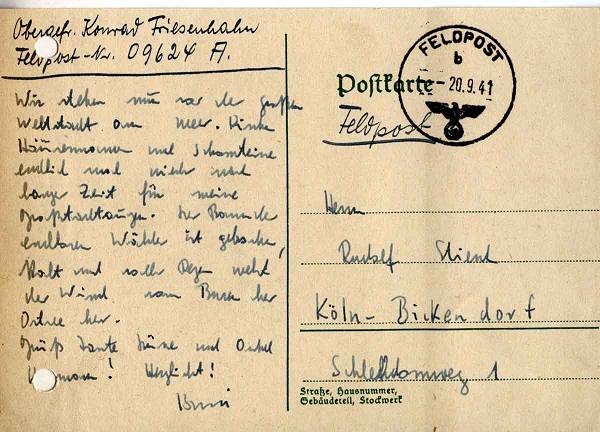 Obergefr. Konrad Friesenhahn
Feldpost-Nr. 09624 A.
Wir stehen nun vor der großen
Weltstadt am Meer.
Häusermassen und Schornsteine
endlich mal nicht nach
langer Zeit für meine
Großstadtaugen. Der Bann der
endlosen Wälder ist gebrochen,
Kalt und voller Regen weht
der Wind von Buch her
Ostsee her.
Gruß Tante und Onkel
Herzlichst!
FELDPOST
b
20.9.41
Postkarte
Feldpost
Herrn
Rudolf
Köln-Bickendorf
1
Straße, Hausnummer,
Gebäudeteil, Stockwerk